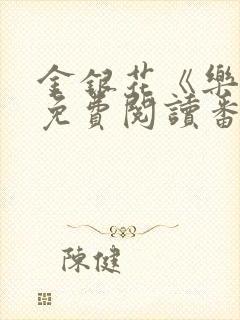 金銀花《樂
免費閱讀番
陳健